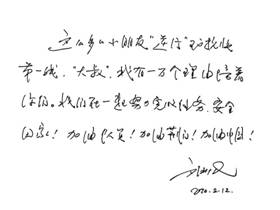 这么多小朋友"逆行"到抗疫
第一线,"大叔"我有一万个理由陪着
你们。我们在一起努力完成任务,安全
回家!加油队员!加油荆门!加油中国!
2020.2.12.